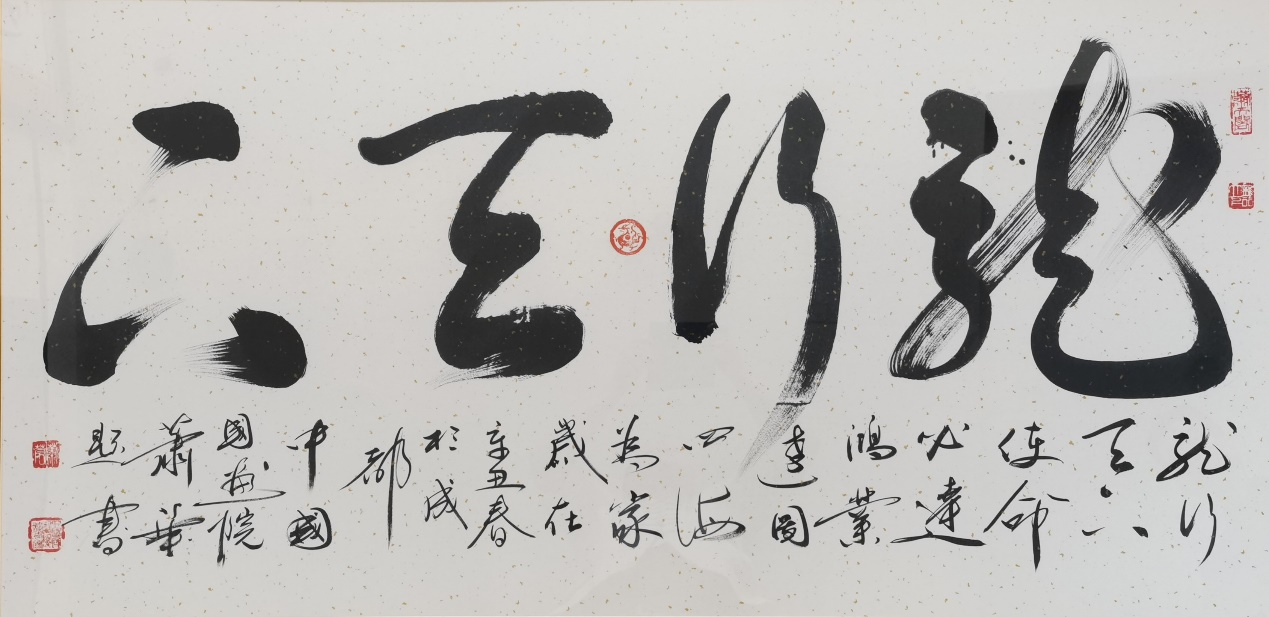 龍行天下
龍行
天下
使命
必達
鴻業
遠圖
四海
為家
歲在
辛丑春
於成
都
中國
國畫院
蕭華
題書